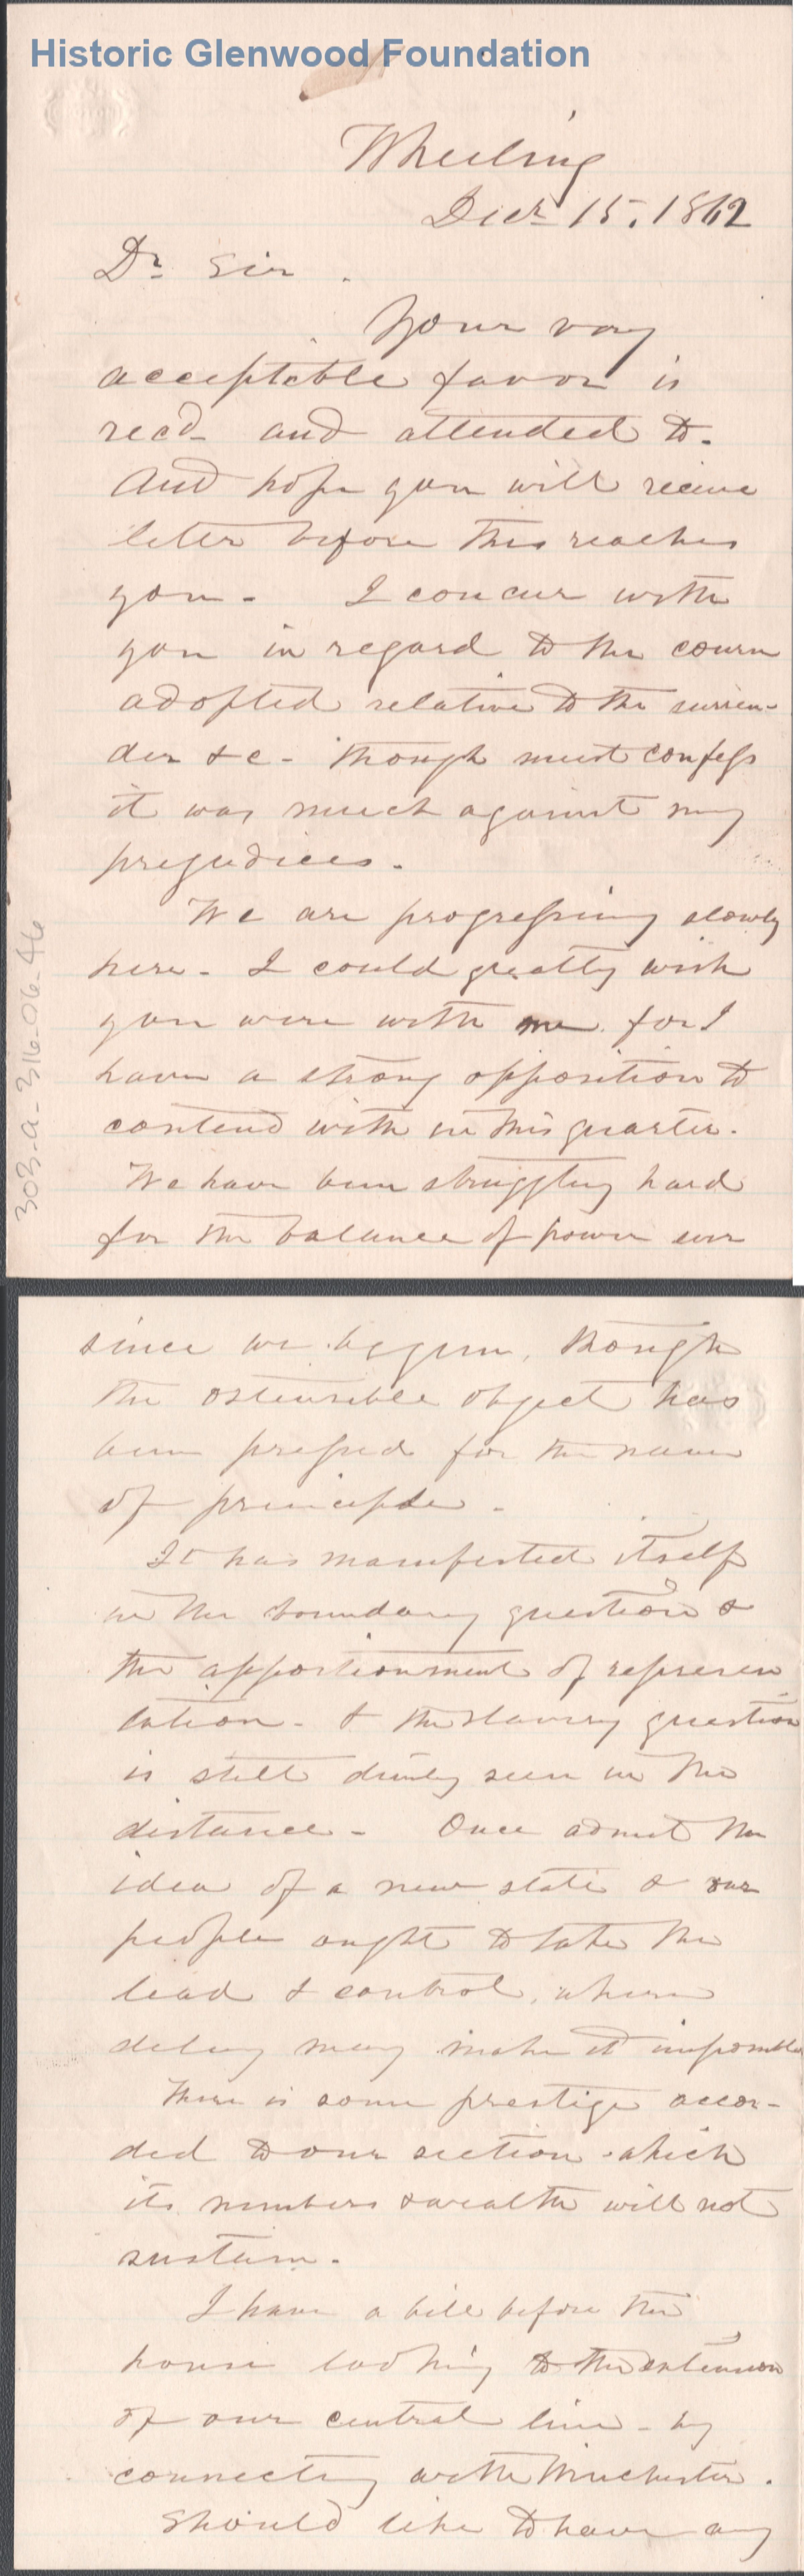 Historic Glenwood Foundation
Wheeling
Decr 15, 1862
Dr Sir.
Your very
acceptable favor is
recd- and attended to.
And hope you will receive
letter before this reaches
you- I concur with
you in regard to the course
adopted relative to the surren-
der &c- though must confess
it was much against my
prejudices.
We are progressing slowly
here- I could greatly wish
you were with me for I
have a strong opposition to
contend with in this quarter.
We have been struggling hard
for the balance of power ever
303-a-316-06-46
since we begun, though
the ostensible object has
been pressed for the name
of principle.
It has manifested itself
in the boundary question &
the apportionment of represen
tation- & the slavery question
is still dimly seen in the
distance- Once admit the
idea of a new state & our
people ought to take the
lead & control, where
delay may make it impossible
There is some prestige accor-
ded to our section which
its numbers & wealth will not
sustain.
I have a bill before the
house looking to the extension
of our central line- by
connecting with Winchester.
Should like to have any